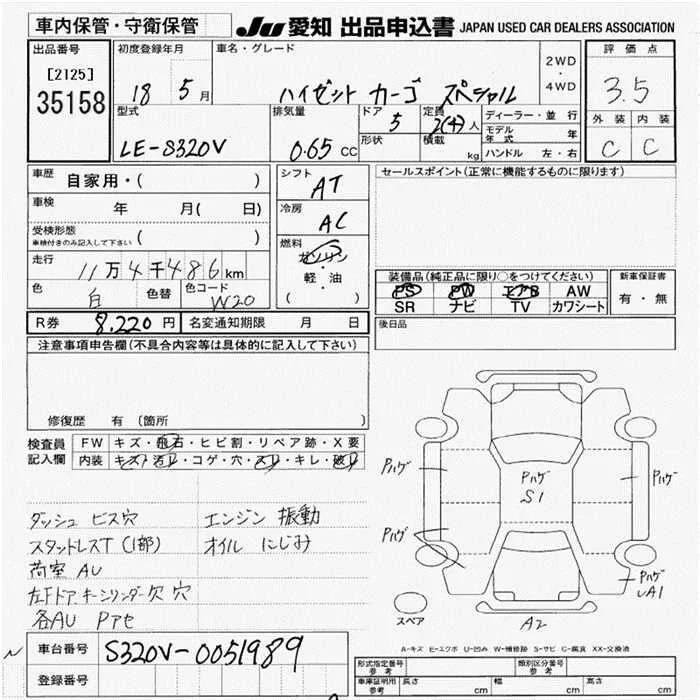 車内保管・守衛保管
JU 愛知 出品申込書 JAPAN USED CAR DEALERS ASSOCIATION
出品番号
[2125]
35158
初度登録年月
18 5 月
車名・グレード
ハイゼット カーゴ スペシャル
2WD
・
4WD
評価点
3.5
外装 内装
C C
型式
LE-S320V
排気量
0.65 cc
ドア
5
形状
定員
2(4)人
積載
kg
ディーラー・並行
モデル年式 年
ハンドル 左・右
車歴 自家用・( )
車検 年 月( 日)
受検形態
車検付きのみ記入して下さい ( )
走行
11万4千486km
色
白
色替
色コード
W20
シフト
AT
冷房
AC
燃料
ガソリン
・
軽・油
( )
セールスポイント(正常に機能するものに限ります)
装備品(純正品に限り○をつけてください)
PS PW エアB AW
SR ナビ TV カワシート
新車保証書
有・無
R券 8,220円
名変通知期限 月 日
後日品
注意事項申告欄(不具合内容等は具体的に記入して下さい)
修復歴 有 (箇所 )
検査員
記入欄
FW キズ・飛石・ヒビ割・リペア跡・X要
内装 キズ・汚レ・コゲ・穴・スレ・キレ・破レ
ダッシュ ビス穴 エンジン 振動
スタットレスT (1部) オイル にじみ
荷室 AU
左Fドア キーシリンダー欠 穴
各AU Pアセ
Pハゲ
Pハゲ
S1
Pハゲ
Pハゲ
Pハゲ
A1
スペア
A2
A-キズ E-エクボ U-凹み W-補修跡 S-サビ C-腐食 XX-交換済
車台番号 S320V-0051989
登録番号
形式指定番号
参考
類別区分番号
参考
車庫証明用
参考
長さ cm 幅 cm 高さ cm